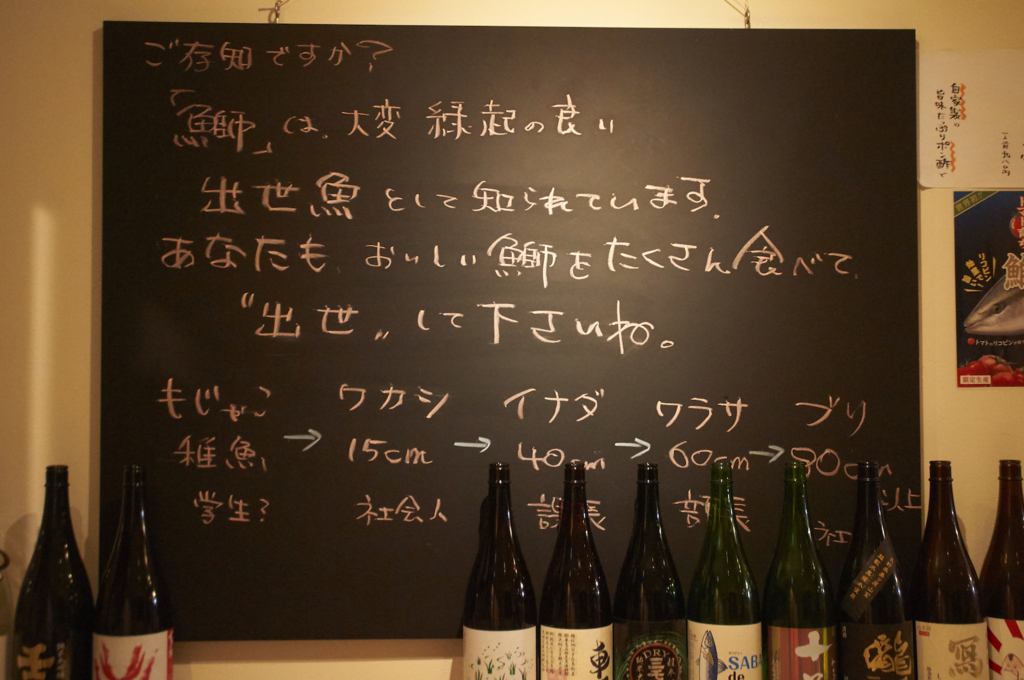 ご存知ですか?
「鰤」は、大変 縁起の良い
出世魚として知られています。
あなたも、おいしい鰤をたくさん食べて、
"出世"して下さいね。
もじゃこ ワカシ イナダ ワラサ ブリ
稚魚 → 15cm → 40cm → 60cm → 80cm
以上
学生? 社会人 課長 部長 社
自家製の
旨味たっぷりポン酢で
リコピン
トマトのリコピン
限定生産
DRY
SABA
de